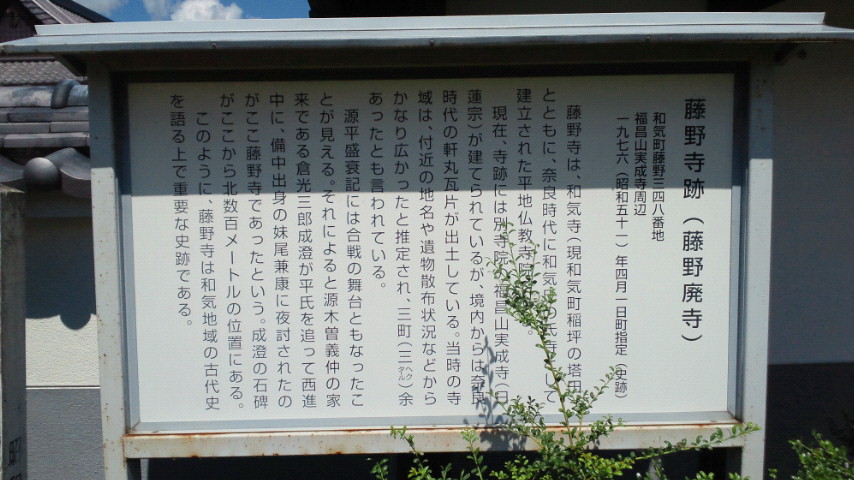 藤野寺跡(藤野廃寺)
和気町藤野三四八番地
福昌山実成寺周辺
一九七六(昭和五十一)年四月一日町指定(史跡)
藤野寺は、和気寺(現和気町稲坪の塔田)
とともに、奈良時代に和気氏の氏寺として
建立された平地仏教寺院
現在、寺跡には別寺院の福昌山実成寺(日
蓮宗)が建てられているが、境内からは奈良
時代の軒丸瓦片が出土している。当時の寺
域は、付近の地名や遺物散布状況などから
かなり広かったと推定され、三町(三ヘクタール)余
あったとも言われている。
源平盛衰記には合戦の舞台ともなったこ
とが見える。それによると源木曽義仲の家
来である倉光三郎成澄が平氏を追って西進
中に、備中出身の妹尾兼康に夜討されたの
がここ藤野寺であったという。成澄の石碑
がここから北数百メートルの位置にある。
このように、藤野寺は和気地域の古代史
を語る上で重要な史跡である。